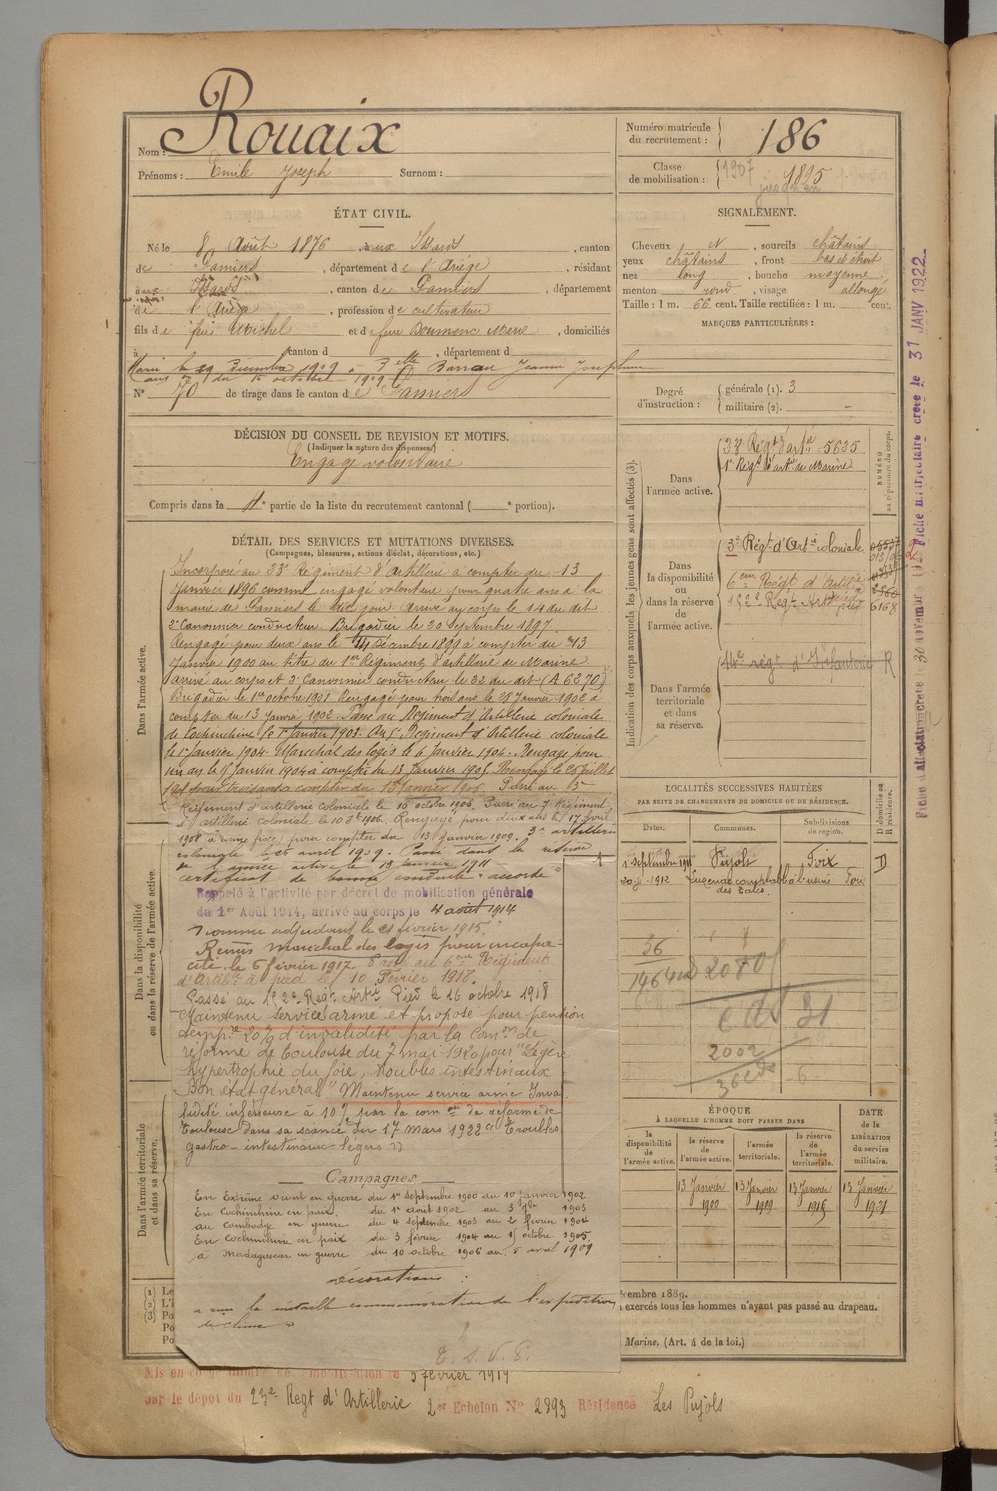 Rouaix
Nom :
Prénoms : Emile Joseph Surnom :
Numéro matricule du recrutement : 186
Classe de mobilisation : 1907 1895
ÉTAT CIVIL.
Né le 8 Août 1876, à aux Issards, canton
de Pamiers, département de l'Ariège, résidant
aux Issards, canton de Pamiers, département
de l'Ariège, profession de cultivateur
fils de feu Michel et de feue Doumenc Marie, domiciliés
à canton d , département d
Marié le 29 Décembre 1909 à Delle Barrau Jeanne Joséphine
du 15 octobre 1909
N° 70 de tirage dans le canton de Pamiers
SIGNALEMENT.
Cheveux N, sourcils châtains
yeux châtains, front bas et étroit
nez long, bouche moyenne
menton rond, visage allongé
Taille : 1 m. 66 cent. Taille rectifiée : 1 m. cent.
MARQUES PARTICULIÈRES :
Degré d'instruction : générale (1). 3
militaire (2). -
DÉCISION DU CONSEIL DE REVISION ET MOTIFS.
(Indiquer la nature des dispenses)
Engagé volontaire
Compris dans la 4e partie de la liste du recrutement cantonal ( e portion).
DÉTAIL DES SERVICES ET MUTATIONS DIVERSES.
(Campagnes, blessures, actions d'éclat, décorations, etc.)
Dans l'armée active.
Incorporé au 23e Régiment d'Artillerie à compter du 13
Janvier 1896 comme engagé volontaire pour quatre ans à la
mairie de Pamiers le dit jour. Arrivé au corps le 14 du dit
2e Canonnier conducteur. Brigadier le 20 Septembre 1897.
Rengagé pour deux ans le 14 Décembre 1899 à compter du 13
Janvier 1900 au titre du 1er Régiment d'artillerie de Marine
arrivé au corps et 2e Canonnier conducteur le 22 du dit (A 6270)
Brigadier le 1er octobre 1901 Rengagé pour trois ans le 28 Janvier 1902 à
compter du 13 Janvier 1902. Passé au Régiment d'Artillerie coloniale
de Cochinchine le 1er Janvier 1903. Au 5e Régiment d'Artillerie coloniale
le 1er Janvier 1904. Maréchal des logis le 6 Janvier 1904. Rengagé pour
un an le 5 Janvier 1904 à compter du 13 Janvier 1905. Rengagé le 25 Juillet
pour trois ans à compter du 13 Janvier 1906. Passé au
Régiment d'artillerie coloniale le 16 octobre 1906. Passé au 7 Régiment
d'artillerie coloniale le 10 1906. Rengagé pour deux ans le 17 avril
1908 pour compter du 13 Janvier 1909. 3e artillerie
coloniale le 25 avril 1909. Passé dans la réserve
de l'armée active le 13 Janvier 1911
certificat de bonne conduite "accordé"
Rappelé à l'activité par décret de mobilisation générale
du 1er Août 1914, arrivé au corps le 4 août 1914
Nommé adjudant le 21 février 1915.
Remis maréchal des logis pour incapa-
cité le 6 février 1917. Passé au 6me Régiment
d'Artie à pied le 10 Février 1918.
Passé au 152e Régt Artie Pied le 16 octobre 1918
Maintenu service armé et proposé pour pension
temp.re 20% d'invalidité par la Comon de
réforme de Toulouse du 7 mai 1920 pour "Légère
hypertrophie du foie, troubles intestinaux
Bon état général" Maintenu service armé Inva-
lidité inférieure à 10% par la comon de réforme de
Toulouse dans sa séance du 17 mars 1922 "Troubles
gastro-intestinaux légers"
Campagnes
En Extrême orient en guerre du 1er septembre 1900 au 10 janvier 1902
En Cochinchine en paix. du 1er août 1902 au 3 7bre 1903
au Cambodge en guerre du 4 septembre 1903 au 2 février 1904
En Cochinchine en paix du 3 février 1904 au 15 octobre 1905.
à Madagascar en guerre du 10 octobre 1906 au 5 avril 1909
Décorations :
" a reçu la médaille commémorative de l'expédition
de Chine "
T. S. V. P.
Dans la disponibilité ou dans la réserve de l'armée active.
Dans l'armée territoriale et dans sa réserve.
Indication des corps auxquels les jeunes gens sont affectés (3).
NUMÉRO au répertoire du corps.
Dans l'armée active.
23e Régt d'arte 5635
1er Régt d'arte de Marine
Dans la disponibilité ou dans la réserve de l'armée active.
3e Régt d'Arte coloniale
6eme Régt d'Artie à pied
152e Régt Artie pied 6168
Dans l'armée territoriale et dans sa réserve.
14e régt d'Infanterie R
LOCALITÉS SUCCESSIVES HABITÉES
PAR SUITE DE CHANGEMENTS DE DOMICILE OU DE RÉSIDENCE.
Dates. Communes. Subdivisions de région. D domicile ou R résidence.
1 septembre 1911 Pujols Foix D
1912 Luzenac comptable à l'usine des talcs. Foix
36
1464
2080
31
2002
36
6
ÉPOQUE
À LAQUELLE L'HOMME DOIT PASSER DANS
la disponibilité de l'armée active.
la réserve de l'armée active.
l'armée territoriale.
la réserve de l'armée territoriale.
DATE de la LIBÉRATION du service militaire.
13 Janvier 1900
13 Janvier 1909
13 Janvier 1915
13 Janvier 1921
décembre 1889.
exercés tous les hommes n'ayant pas passé au drapeau.
Marine. (Art. 4 de la loi.)
Mis en 5 février 1919
par le dépôt du 23e Regt d'Artillerie 2er Echelon N° 2893 Résidence Les Pujols
Fiche matriculaire créée le 31 JANV 1922